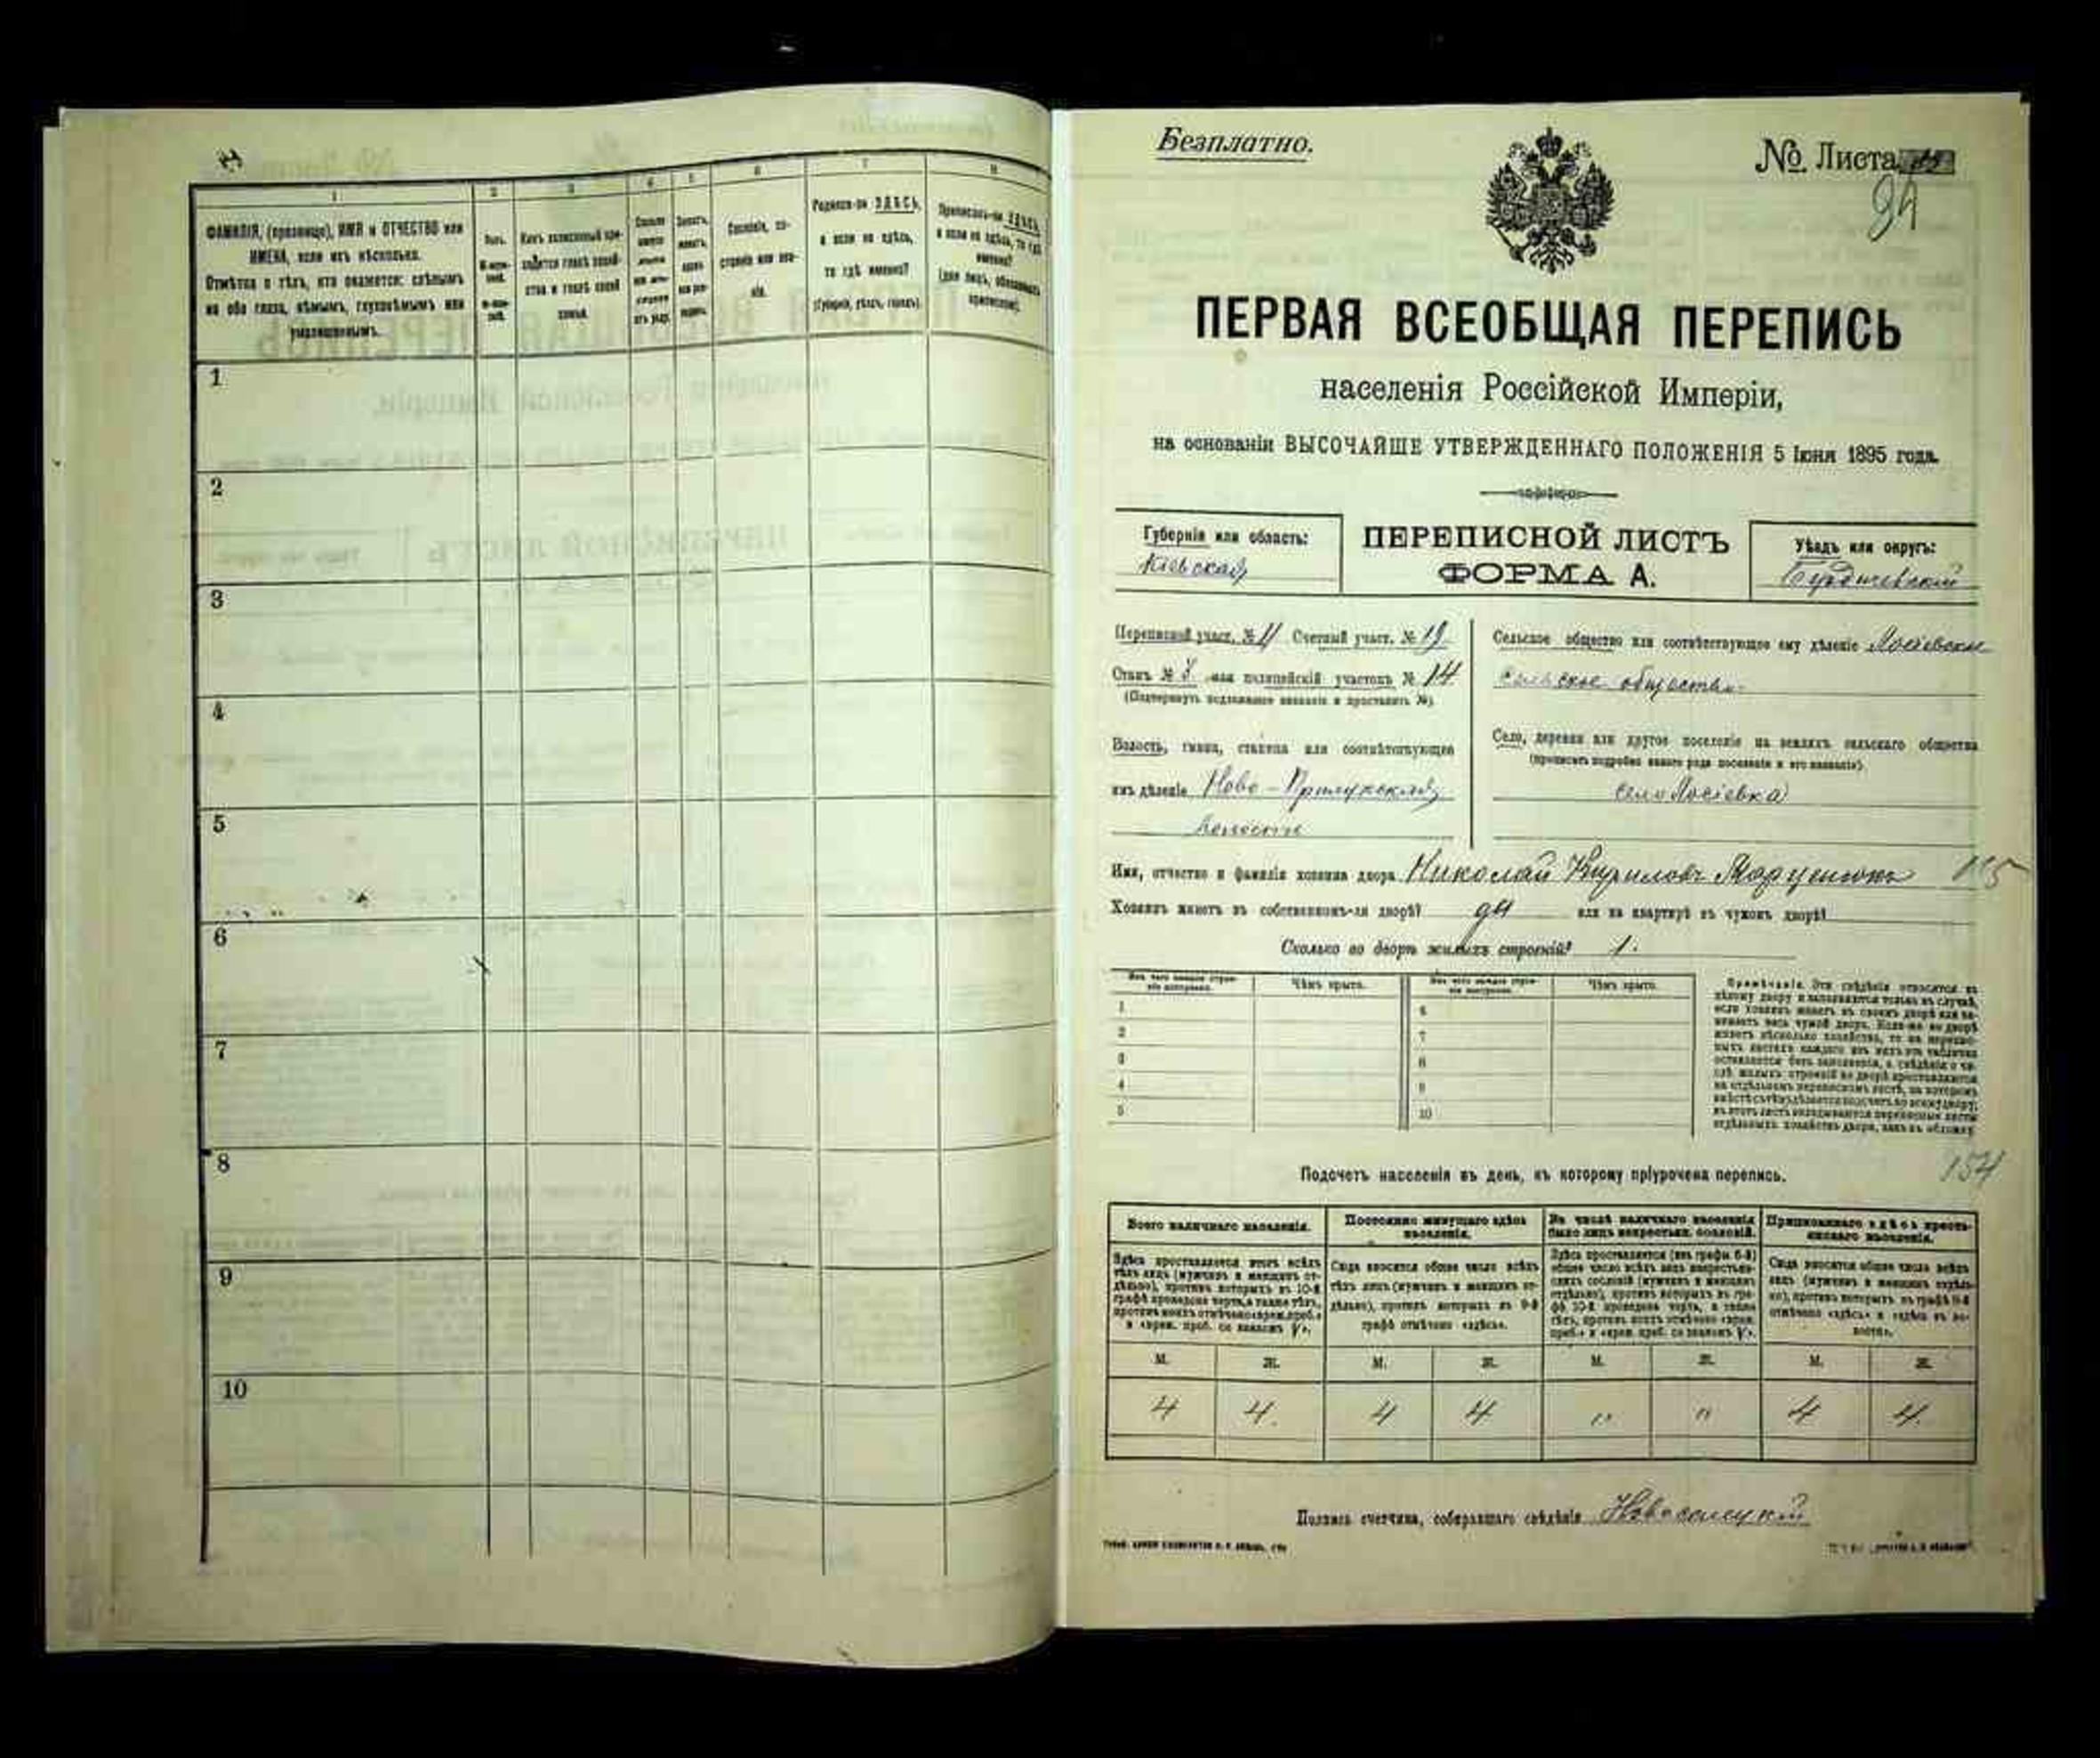 1 2 3 4 5 6 7 8
ФАМИЛІЯ, (прозвище), ИМЯ и ОТЧЕСТВО или
ИМЕНА, если ихъ нѣсколько.
Отмѣтка о тѣхъ, кто окажется: слѣпымъ
на оба глаза, нѣмымъ, глухонѣмымъ или
умалишеннымъ.
Полъ.
Какъ записанный при-
ходится главѣ хозяй-
ства и главѣ своей
семьи.
Сословіе, со-
стояніе или зва-
ніе.
Родился-ли ЗДѢСЬ,
а если не здѣсь,
то гдѣ именно?
(Губернія, уѣздъ, городъ).
Приписанъ-ли ЗДѢСЬ,
а если не здѣсь, то гдѣ
именно?
(для лицъ, обязанныхъ
припискою).
1
2
3
4
5
6
7
8
9
10
Безплатно.
№ Листа
94
ПЕРВАЯ ВСЕОБЩАЯ ПЕРЕПИСЬ
населенія Россійской Имперіи,
на основаніи ВЫСОЧАЙШЕ УТВЕРЖДЕННАГО ПОЛОЖЕНІЯ 5 Іюня 1895 года.
Губернія или область:
Кіевская
ПЕРЕПИСНОЙ ЛИСТЪ
ФОРМА А.
Уѣздъ или округъ:
Бердичевскій
Переписной участ. № 11 Счетный участ. № 19
Станъ № 3 или полицейскій участокъ № 14
(Подчеркнуть подлежащее названіе и проставить №).
Волость, гмина, станица или соотвѣтствующее
имъ дѣленіе Ново-Прилукская
волости
Сельское общество или соотвѣтствующее ему дѣленіе
сельское общество
Село, деревня или другое поселеніе на земляхъ сельскаго общества
(прописать подробно какого рода поселеніе и его названіе).
село Лосіевка
Имя, отчество и фамилія хозяина двора Николай Кириловъ Марценюкъ 115
Хозяинъ живетъ въ собственномъ-ли дворѣ? да или на квартирѣ въ чужомъ дворѣ?
Сколько во дворѣ жилыхъ строеній? 1.
Изъ чего каждое строе-
ніе построено.
Чѣмъ крыто.
Изъ чего каждое строе-
ніе построено.
Чѣмъ крыто.
1 6
2 7
3 8
4 9
5 10
Примѣчаніе. Эти свѣдѣнія относятся къ
цѣлому двору и заполняются только въ случаѣ,
если хозяинъ живетъ въ своемъ дворѣ или за-
нимаетъ весь чужой дворъ. Если-же во дворѣ
живетъ нѣсколько хозяйствъ, то на перепис-
ныхъ листахъ каждаго изъ нихъ эта табличка
оставляется безъ заполненія, а свѣдѣнія о чи-
слѣ жилыхъ строеній во дворѣ проставляются
на отдѣльномъ переписномъ листѣ, на которомъ
вмѣстѣ съ тѣмъ дѣлается подсчетъ по всему двору;
въ этотъ листъ вкладываются переписные листы
отдѣльныхъ хозяйствъ двора, какъ въ обложку.
Подсчетъ населенія въ день, къ которому пріурочена перепись.
154
Всего наличнаго населенія.
Здѣсь проставляется итогъ всѣхъ
тѣхъ лицъ (мужчинъ и женщинъ от-
дѣльно), противъ которыхъ въ 10-й
графѣ проведена черта, а также тѣхъ,
противъ коихъ отмѣчено «врем. преб.»
и «врем. проб. со знакомъ V».
Постоянно живущаго здѣсь
населенія.
Сюда вносится общее число всѣхъ
тѣхъ лицъ (мужчинъ и женщинъ от-
дѣльно), противъ которыхъ въ 9-й
графѣ отмѣчено «здѣсь».
Въ числѣ наличнаго населенія
было лицъ некрестьян. сословій.
Здѣсь проставляется (изъ графы 6-й)
общее число всѣхъ лицъ некрестьян-
скихъ сословій (мужчинъ и женщинъ
отдѣльно), противъ которыхъ въ гра-
фѣ 10-й проведена черта, а также
тѣхъ, противъ коихъ отмѣчено «врем.
преб.» и «врем. преб. со знакомъ V».
Приписаннаго здѣсь кресть-
янскаго населенія.
Сюда вносится общее число всѣхъ
лицъ (мужчинъ и женщинъ отдѣль-
но), противъ которыхъ въ графѣ 8-й
отмѣчено «здѣсь» и «здѣсь въ во-
лости».
М. Ж. М. Ж. М. Ж. М. Ж.
4 4. 4 4 " " 4 4.
Подпись счетчика, собиравшаго свѣдѣнія Новоселецкій